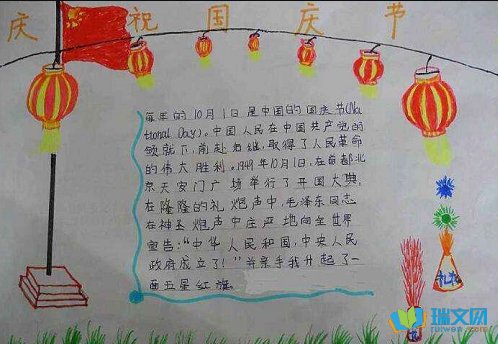 庆祝国庆节
每年的10月1日是中国的国庆节(Na
tional Day)。中国人民在中国共产党的
领就下,前赴后继,取得了人民革命
的伟大胜利。1949年10月1日,在首都北
京天安门广场举行了开国大典,
在隆隆的礼炮声中,毛泽东同志
在神圣炮声中庄严地向全世界
宣告:“中华人民和国,中央人民
政府成立了!”并亲手我升起了一
面五星红旗
礼花
瑞文网
ruiwen.com